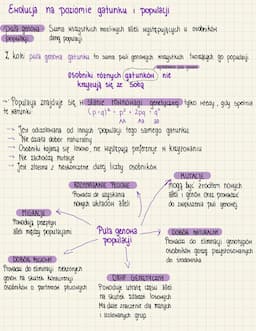 Ewolucja na poziomie gatunku i populacji
Pula genowa populacji - Suma wszystkich możliwych alleli występujących u osobników
danej populacji
Z kolei pula genowa gatunku to suma puli genowych wszystkich tworzących go populacji.
Osobniki różnych gatunków nie
krzyżują się ze sobą
Populacja znajduje się w stanie równowagi genetycznej tylko wtedy, gdy spełnia
te warunki:
(p+q)² = p² + 2pq + q²
AA Aa aa
→ Jest odizolowana od innych populacji tego samego gatunku
→ Nie działa dobór naturalny
→ Osobniki kojarzą się losowo, nie występują preferencje w krzyżowaniu
→ Nie zachodzą mutacje
→ Jest złożona z nieskończenie dużej liczby osobników
ROZMNAŻANIE PŁCIOWE
Prowadzi do uzyskania
nowych układów alleli
MUTACJE
mogą być źródłem nowych
alleli i genów oraz prowadzić
do zwiększenia puli genowej
MIGRACJE
Powodują przepływ
alleli między populacjami
Pula genowa
populacji
DOBÓR NATURALNY
Prowadzi do eliminacji genotypów
osobników gorzej przystosowanych
do środowiska
DOBÓR PŁCIOWY
Prowadzi do eliminacji niektórych
genów na skutek konkurencji
osobników o partnerów płciowych
DRYF GENETYCZNY
Powoduje utratę części alleli
na skutek zdarzeń losowych
Ma duże znaczenie dla małych
i izolowanych grup